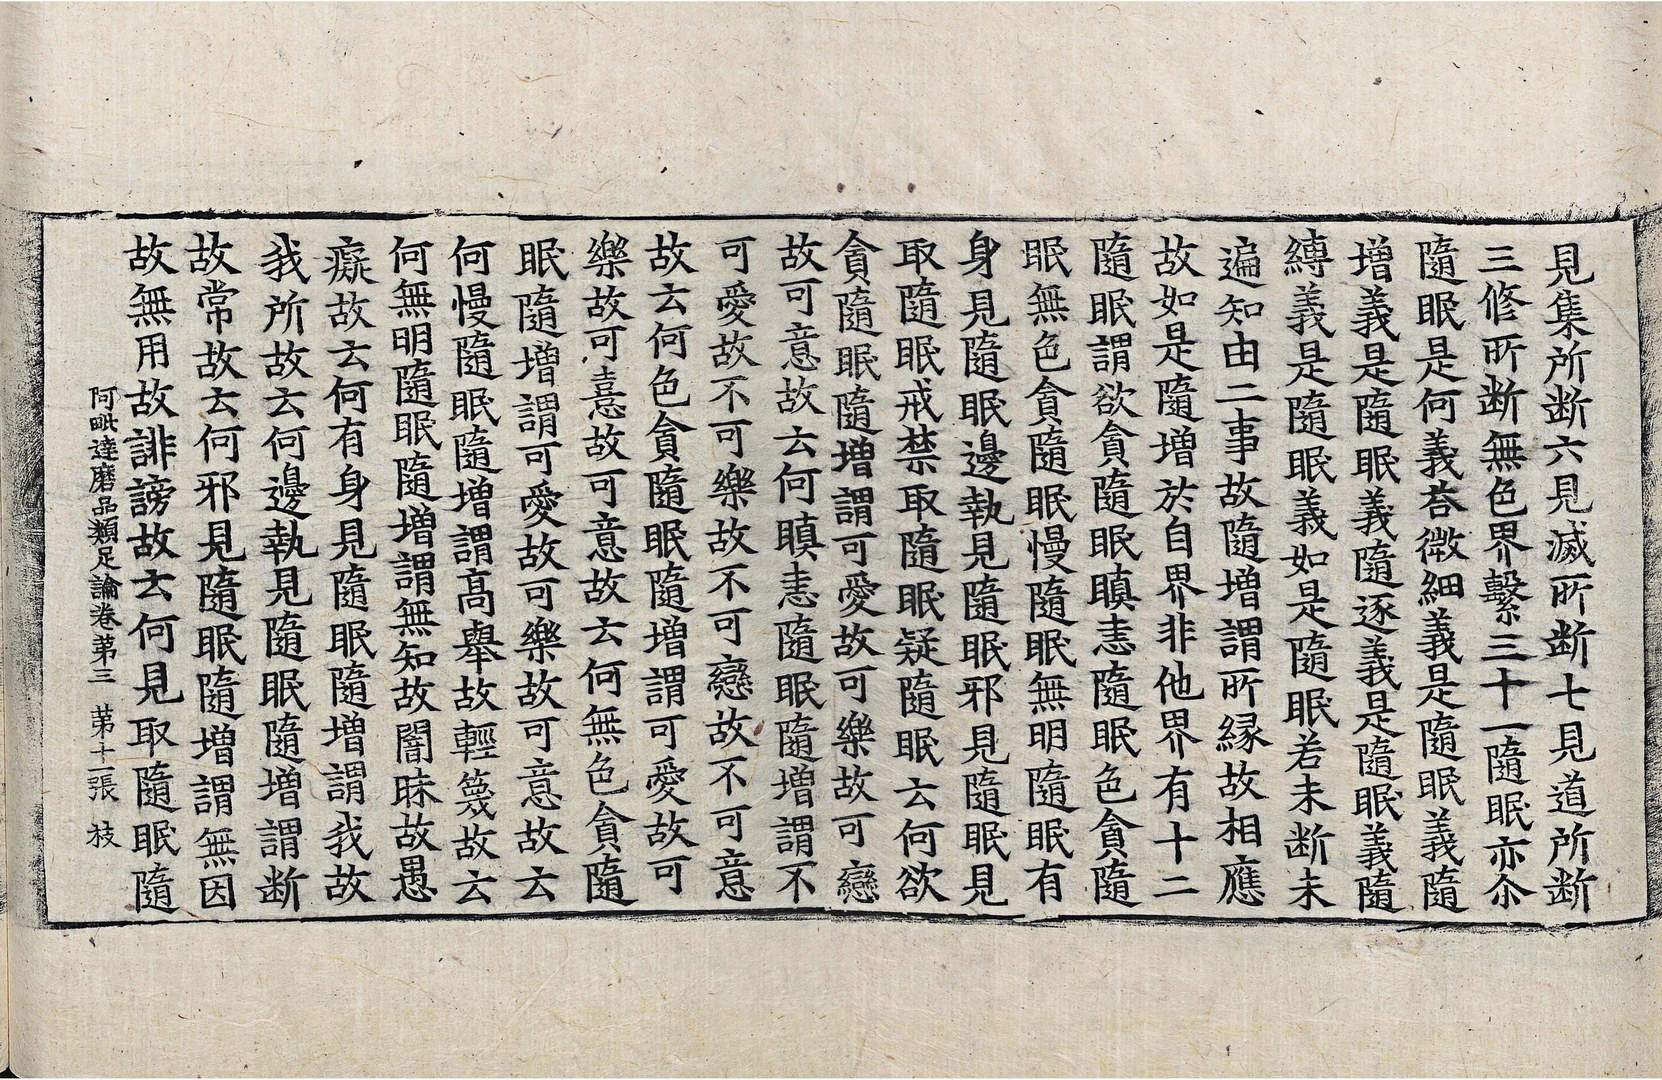 見集所断六見滅所断七見道所断
三修所断無色界繫三十一隨眠亦尒
隨眠是何義荅微細義是隨眠義隨
增義是隨眠義隨逐義是隨眠義隨
縛義是隨眠義如是隨眠若未断未
遍知由二事故隨增謂所緣故相應
故如是隨增於自界非他界有十二
隨眠謂欲貪隨眠瞋恚隨眠色貪隨
眠無色貪隨眠慢隨眠無明隨眠有
身見隨眠邊執見隨眠邪見隨眠見
取隨眠戒禁取隨眠疑隨眠云何欲
貪隨眠隨增謂可愛故可樂故可戀
故可意故云何瞋恚隨眠隨增謂不
可愛故不可樂故不可戀故不可意
故云何色貪隨眠隨增謂可愛故可
樂故可憙故可意故云何無色貪隨
眠隨增謂可愛故可樂故可意故云
何慢隨眠隨增謂高舉故輕篾故云
何無明隨眠隨增謂無知故闇昧故愚
癡故云何有身見隨眠隨增謂我故
我所故云何邊執見隨眠隨增謂断
故常故云何邪見隨眠隨增謂無因
故無用故誹謗故云何見取隨眠隨
阿毗達磨品類足論卷苐三　苐十一張　枝